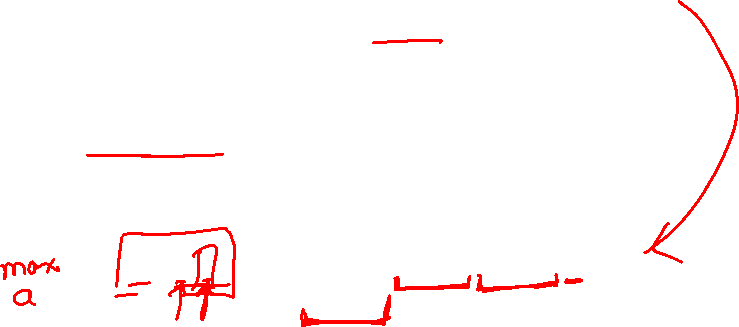 max
a